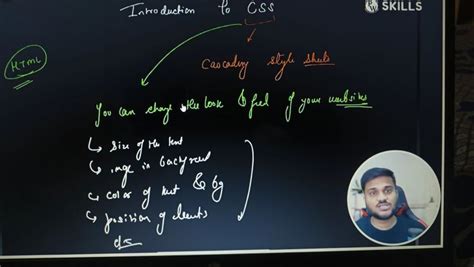 Introduction to CSS
SKILLS
HTML
Cascading Style Sheets
You can change the look & feel of your websites
size of the text
image in background
color of text & bg
position of elements